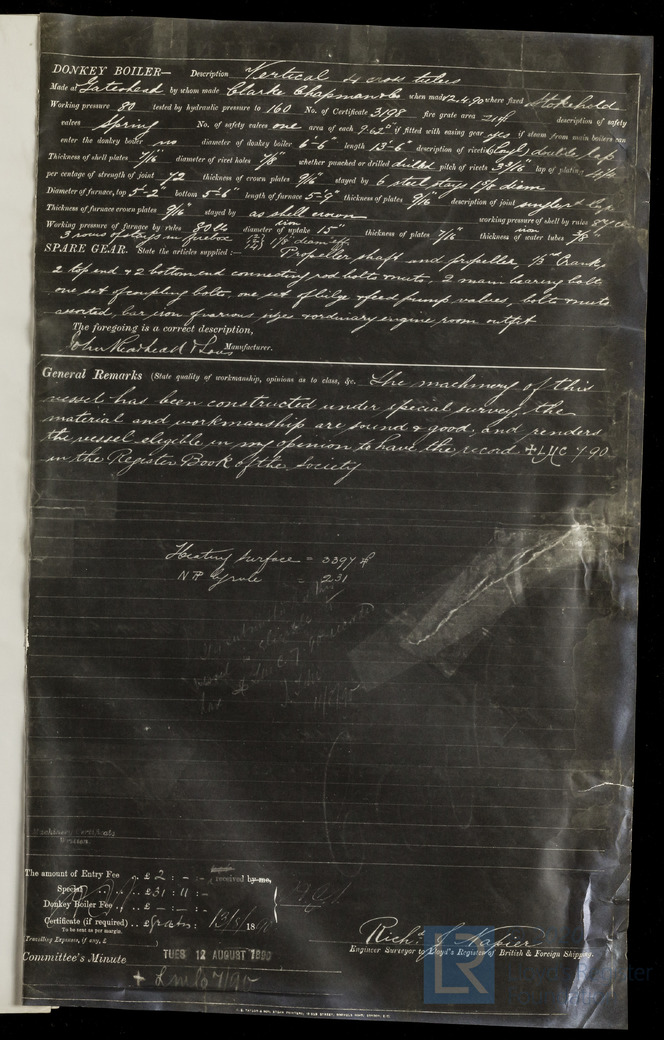 DONKEY BOILER— Description Vertical 4 cross tubes
Made at Gateshead by whom made Clarke Chapman & Co when made 12.4.90 where fixed Stokehold
Working pressure 80 tested by hydraulic pressure to 160 No. of Certificate 3198 fire grate area description of safety
valves Spring No. of safety valves one area of each 9.62" if fitted with easing gear yes if steam from main boilers can
enter the donkey boiler no diameter of donkey boiler 6-6" length 13-6" description of riveting double lap
Thickness of shell plates 7/16" diameter of rivet holes 7/8" whether punched or drilled drilled pitch of rivets 3 3/16 lap of plating
per centage of strength of joint 72 thickness of crown plates 9/16" stayed by 6 steel stays 1 5/8 diam
Diameter of furnace, top 5-2" bottom 5-6" length of furnace 5-9" thickness of plates 9/16" description of joint single lap
Thickness of furnace crown plates 9/16" stayed by as shell crown working pressure of shell by rules
Working pressure of furnace by rules 80 lbs diameter of uptake 15" thickness of plates 7/16" thickness of water tubes 3/8"
3 rows of stays in firebox
SPARE GEAR. State the articles supplied:— Propeller shaft and propeller, 1/3rd Crank,
2 top end & 2 bottom end connecting rod bolts & nuts, 2 main bearing bolts
one set of coupling bolts, one set of bilge & feed pump valves, bolts & nuts
assorted, bar iron of various sizes & ordinary engine room outfit
The foregoing is a correct description,
John Readhead & Sons Manufacturer.
General Remarks (State quality of workmanship, opinions as to class, &c. The machinery of this
vessel has been constructed under special survey, the
material and workmanship are sound & good, and renders
the vessel eligible in my opinion to have the record +LMC 7.90
in the Register Book of the Society
Heating surface = 3397
NHP = 231
Machinery Certificate
Written.
The amount of Entry Fee .. £ 2 : - : - received by me,
Special .. .. £ 31 : 11 : -
Donkey Boiler Fee .. £ - : - : -
Certificate (if required) .. £ gratis : 13/8/ 18
To be sent as per margin.
(Travelling Expenses, if any, £ )
Richd. J. Napier
Engineer Surveyor to Lloyd's Register of British & Foreign Shipping.
Committee's Minute TUES 12 AUGUST 1890
+ LMC 7/90